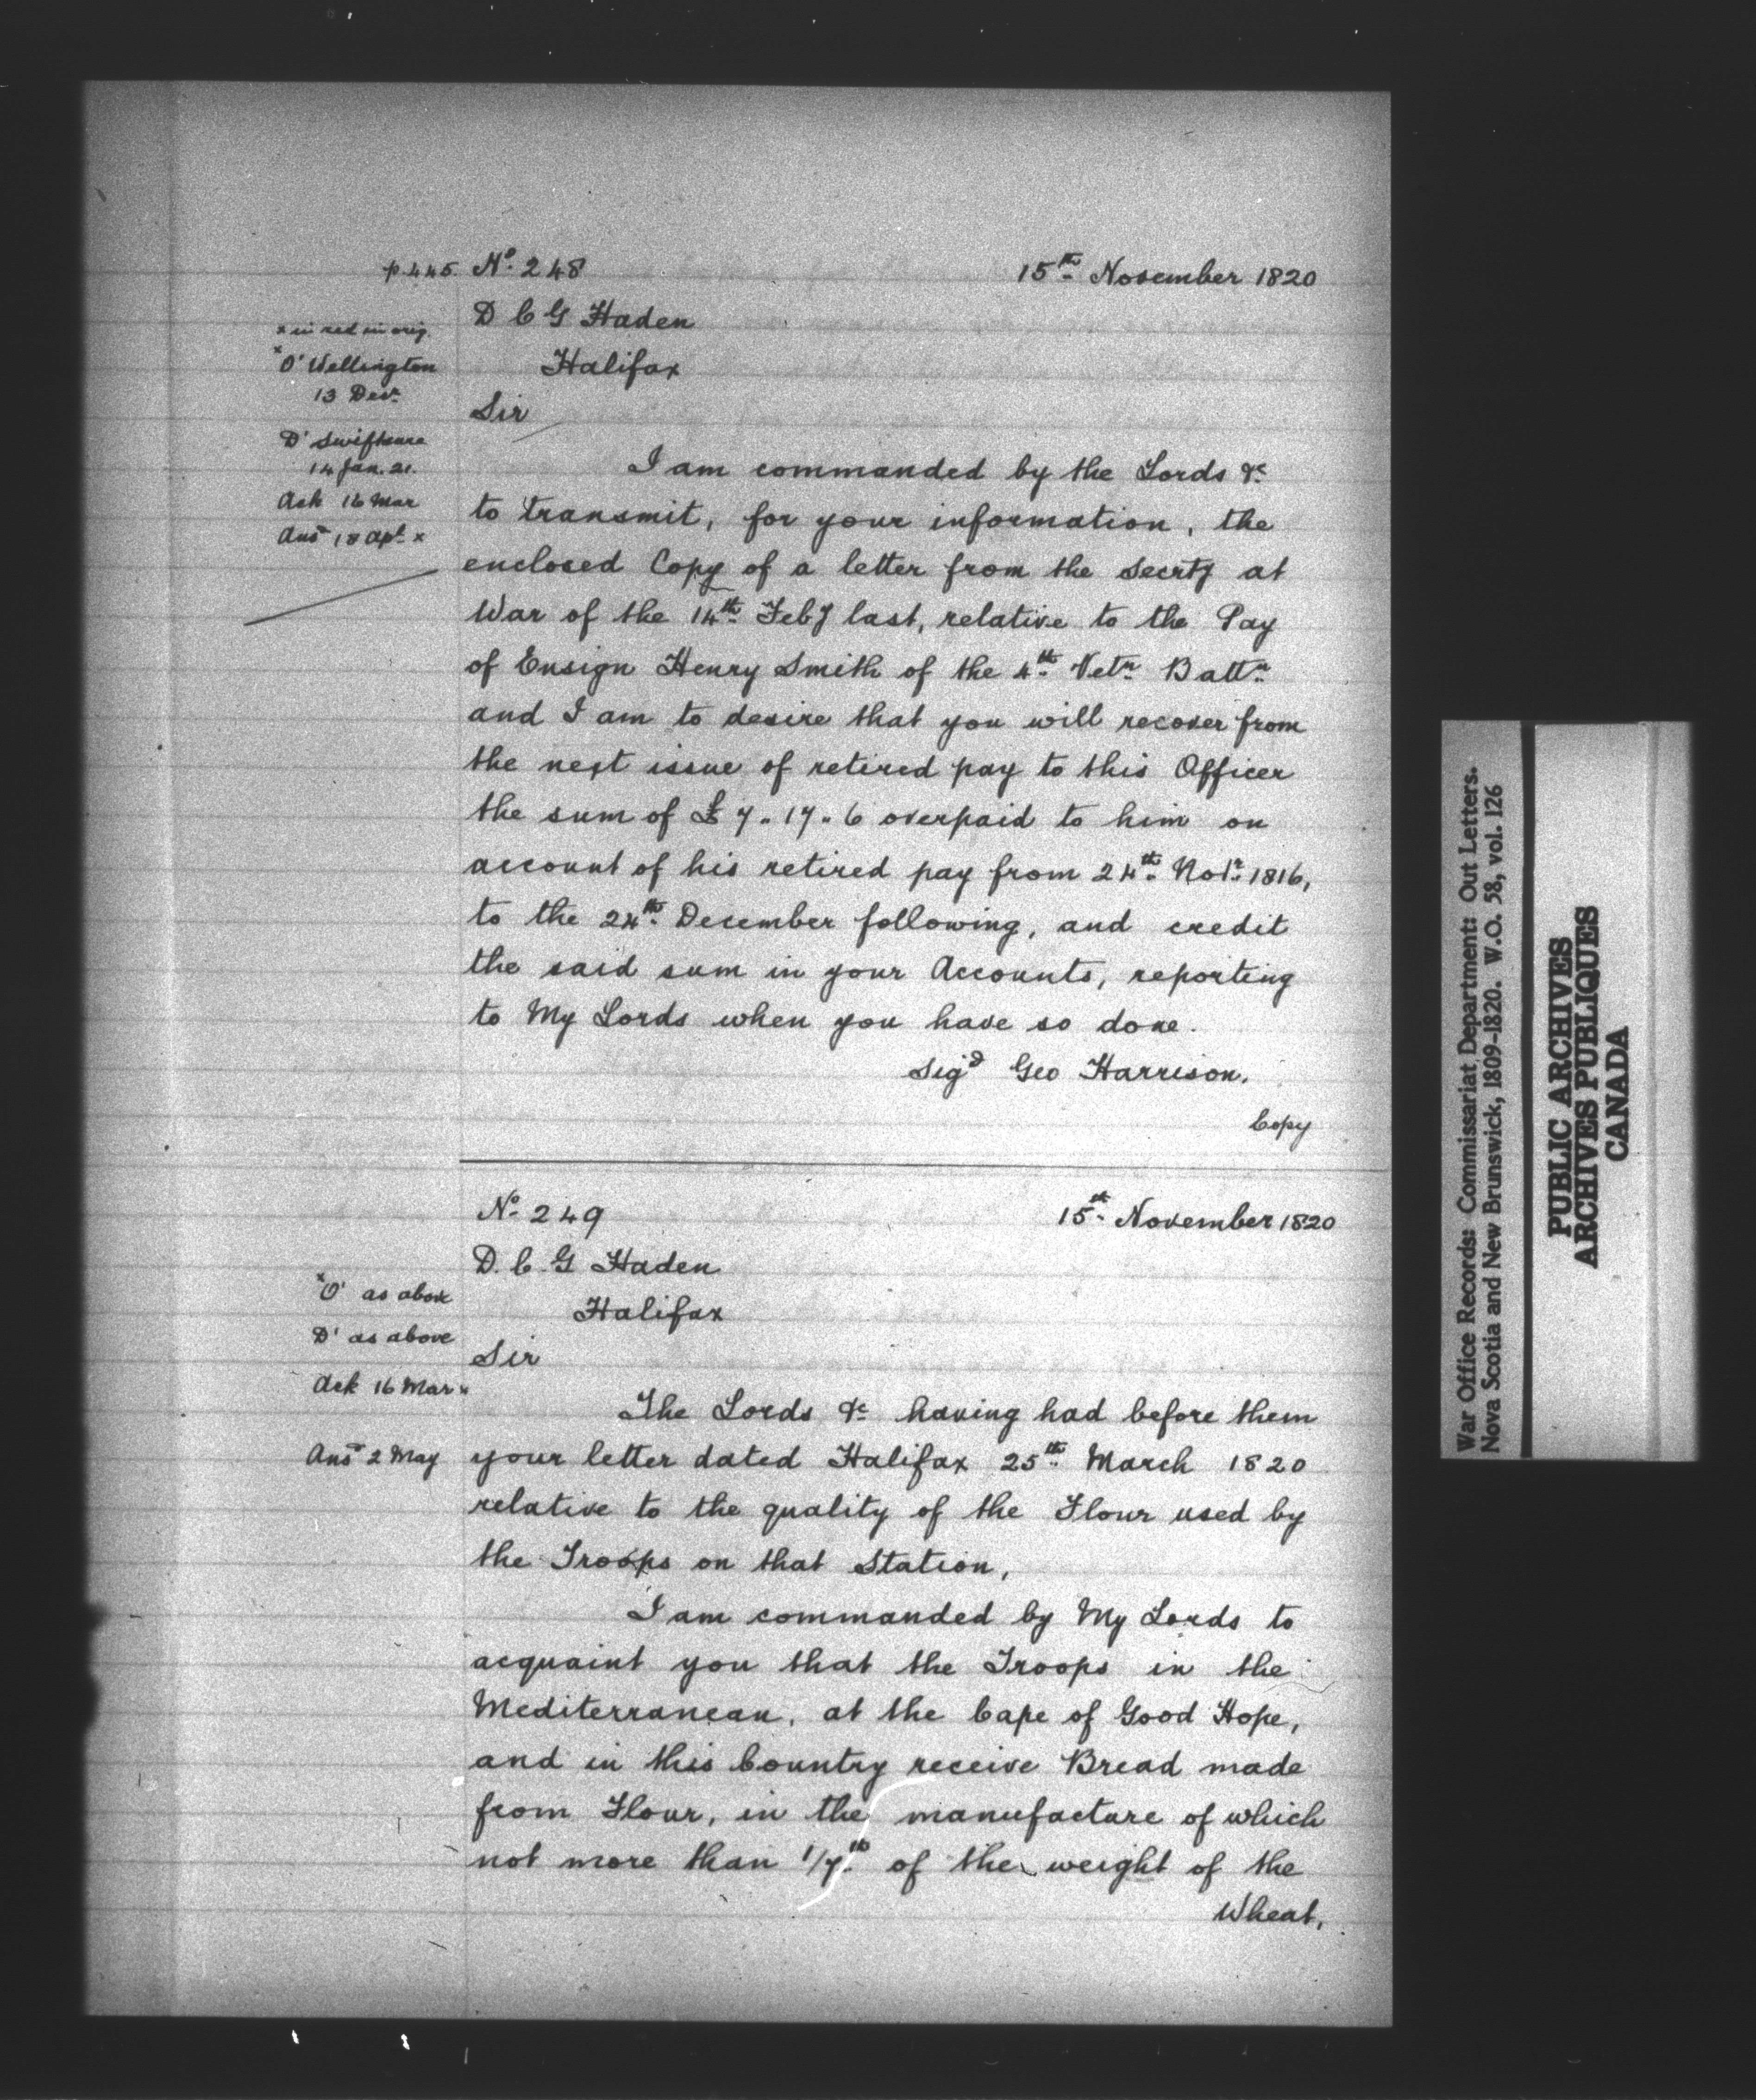 p. 445. No. 248
15th November 1820
D C G Haden
Halifax
x in red in orig.
x O' Wellington
13 Decr
D' Swiftsure
14 Jan. 21.
Ack 16 Mar
Ansd 18 Apl. x
Sir
I am commanded by the Lords &c
to transmit, for your information, the
enclosed Copy of a letter from the Secrty at
War of the 14th Feby last, relative to the Pay
of Ensign Henry Smith of the 4th Vetn Battn
and I am to desire that you will recover from
the next issue of retired pay to this Officer
the sum of £7.17.6 overpaid to him on
account of his retired pay from 24th Novr 1816,
to the 24th December following, and credit
the said sum in your Accounts, reporting
to My Lords when you have so done.
Sigd Geo Harrison.
Copy
No. 249
15th November 1820
D. C. G Haden
Halifax
x O' as above
D' as above
Ack 16 Mar x
Ansd 2 May
Sir
The Lords &c having had before them
your letter dated Halifax 25th March 1820
relative to the quality of the Flour used by
the Troops on that Station,
I am commanded by My Lords to
acquaint you that the Troops in the
Mediterranean, at the Cape of Good Hope,
and in this Country receive Bread made
from Flour, in the manufacture of which
not more than 1/7th of the weight of the
Wheat,
War Office Records: Commissariat Department: Out Letters.
Nova Scotia and New Brunswick, 1809-1820. W.O. 58, vol. 126
PUBLIC ARCHIVES
ARCHIVES PUBLIQUES
CANADA